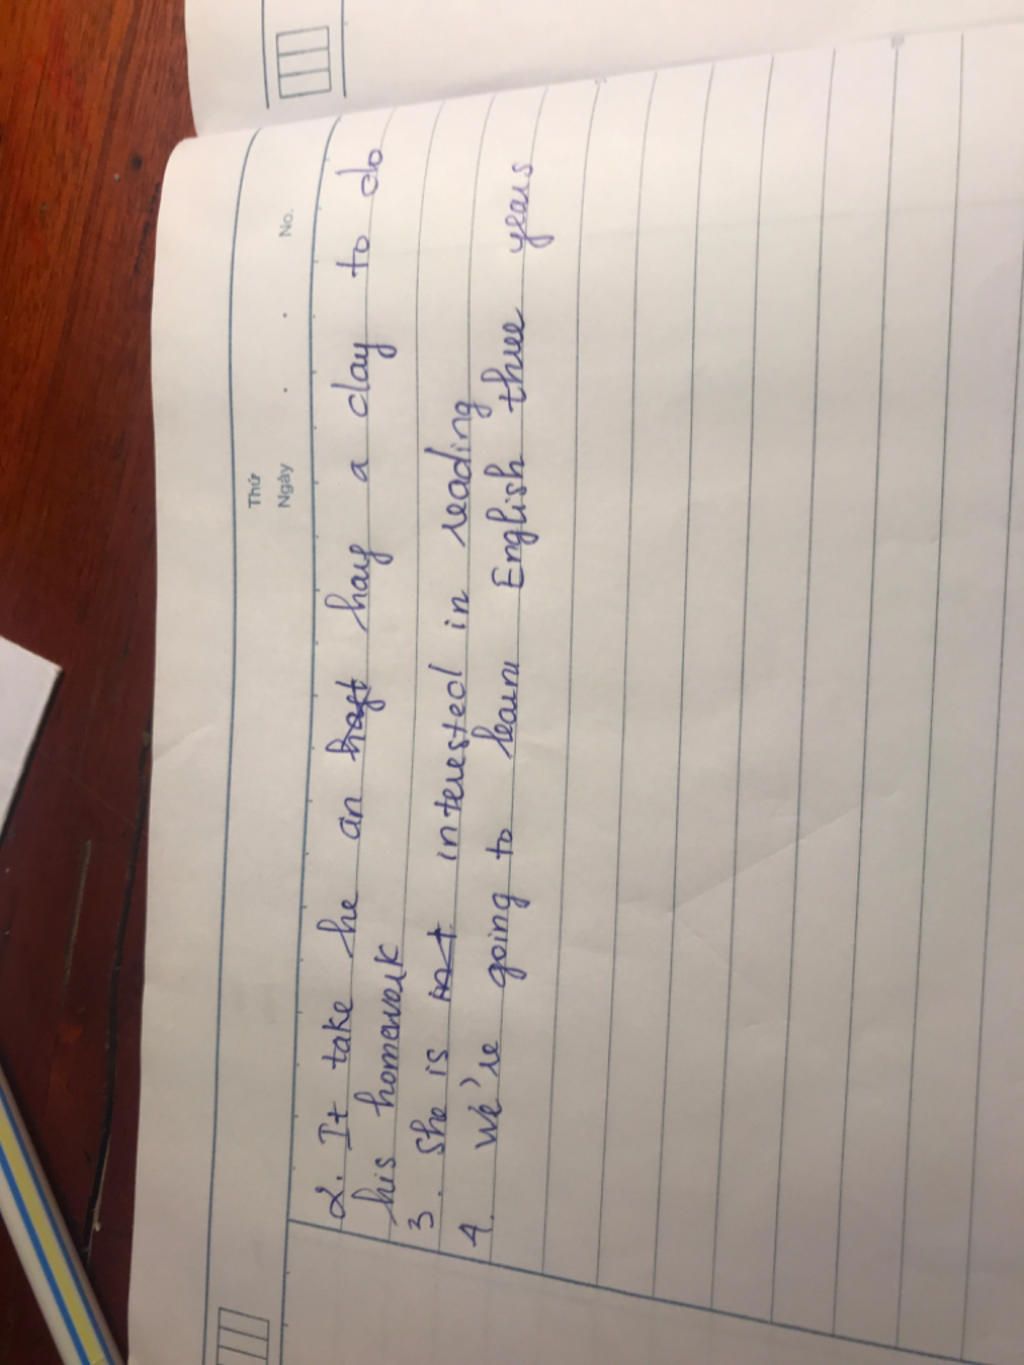 Thứ
Ngày . . No.
2. It take he an haft hay a day to do
his homework
3. She is int interested in reading
4. We're going to learn English three years